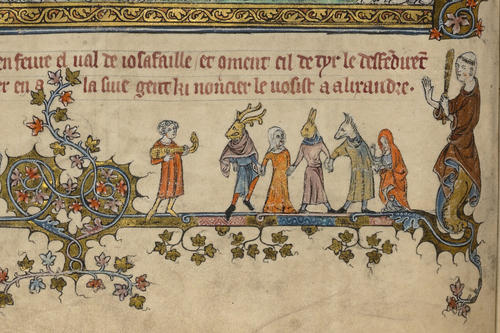 en feure el val de iosafaille et coment cil de tyr le desfedirent
er en a la siue gent ki noncier le uosist a alixandre.